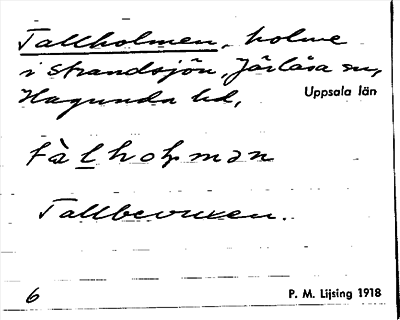 Tallholmen, holme
i Strandsjön, Järlåsa sn,
Hagunda hd,
Uppsala län
tàlhoḷmən
Tallbevuxen.
6
P. M. Lijsing 1918